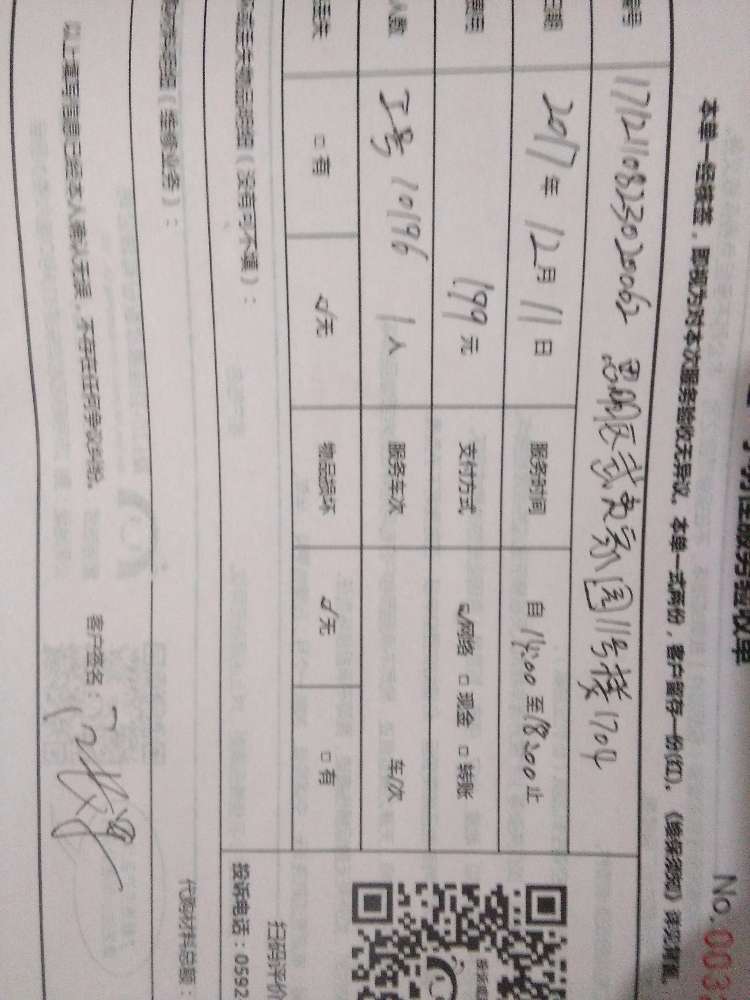 务验收单
No.003
本单一经接签，即视为对本次服务验收无异议。本单一式两份，客户留存一份(红)。《维保须知》详见背面。
编号 1712110823020062 思明区武夷家园11号楼1704
日期 2017年12月11日 服务时间 自14:00至18:00止
费用 199元 支付方式 ☑网络 □现金 □转账
人数 工号10196 1人 服务车次 车/次
丢失 □有 ☑无 物品损坏 ☑无 □有
丢失物品明细（没有可不填）：
明细（维修业务）：
以上填写信息已经本人确认无误，不存在任何争议纠纷。
客户签名：
扫码评价
投诉电话：0592
代购材料总额：